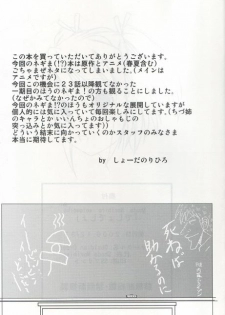 この本を買っていただいてありがとうございます。
今回のネギま(!?)本は原作とアニメ(春夏含む)
ごちゃまぜネタになってしまいました。(メインは
アニメですが)
今回この機会に２３話以降観てなかった
一期目のほうのネギま！の方も観ることにしました。
(なぜかみてなかったので)
今回のネギま!?のほうもオリジナルな展開していますが
個人的に気に入っていて毎回楽しみにしてます。(ちづ姉
のキャラとか いいんちょのおしゃもじの
突っ込みとかが気に入ってます))
どういう結末に向かっていくのかスタッフのみなさま
本当に期待してます。
by しょーだのりひろ
死ねば
助かるのに